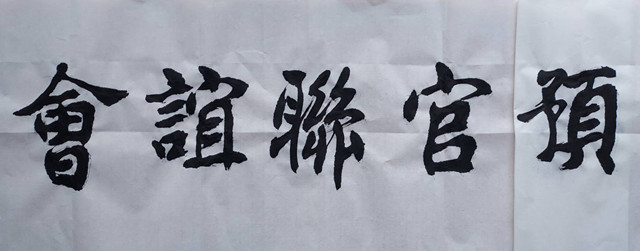 預官聯誼會